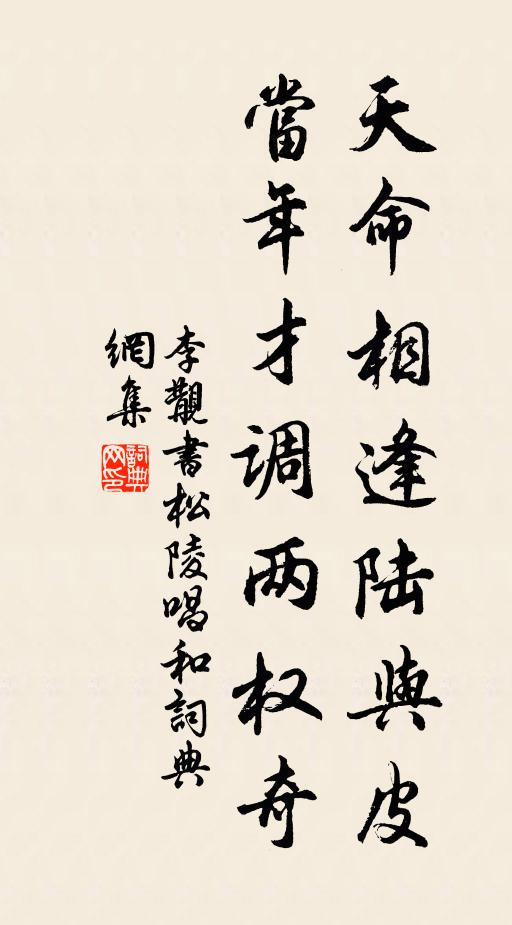 天命相逢陆與皮
當年才调两权奇
李觀書松陵唱和詞典
網集
詞典
网印